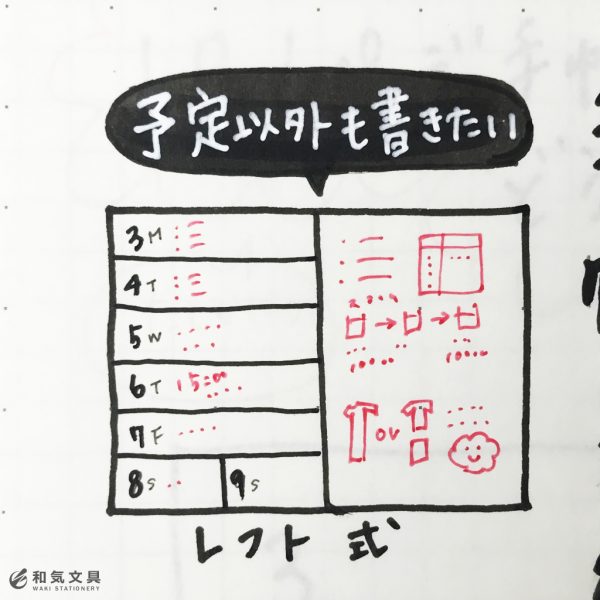 予定以外も書きたい
3M
4T
5W
6T 15:00
7F
8S
9S
10000
10000
or
レフト式
和気文具
WAKI STATIONERY